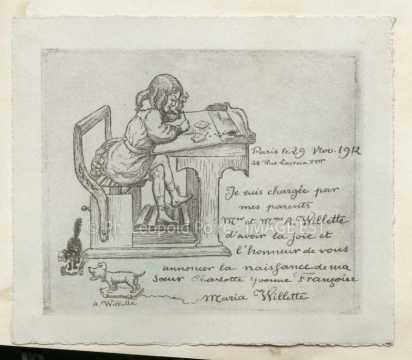 Paris le 29 Nov. 1912
Je suis chargée par
mes parents
Mr et Mme A. Willette
d'avoir la joie et
l'honneur de vous
annoncer la naissance de ma
Sœur Charlotte Yvonne Françoise
Maria Willette
A. Willette